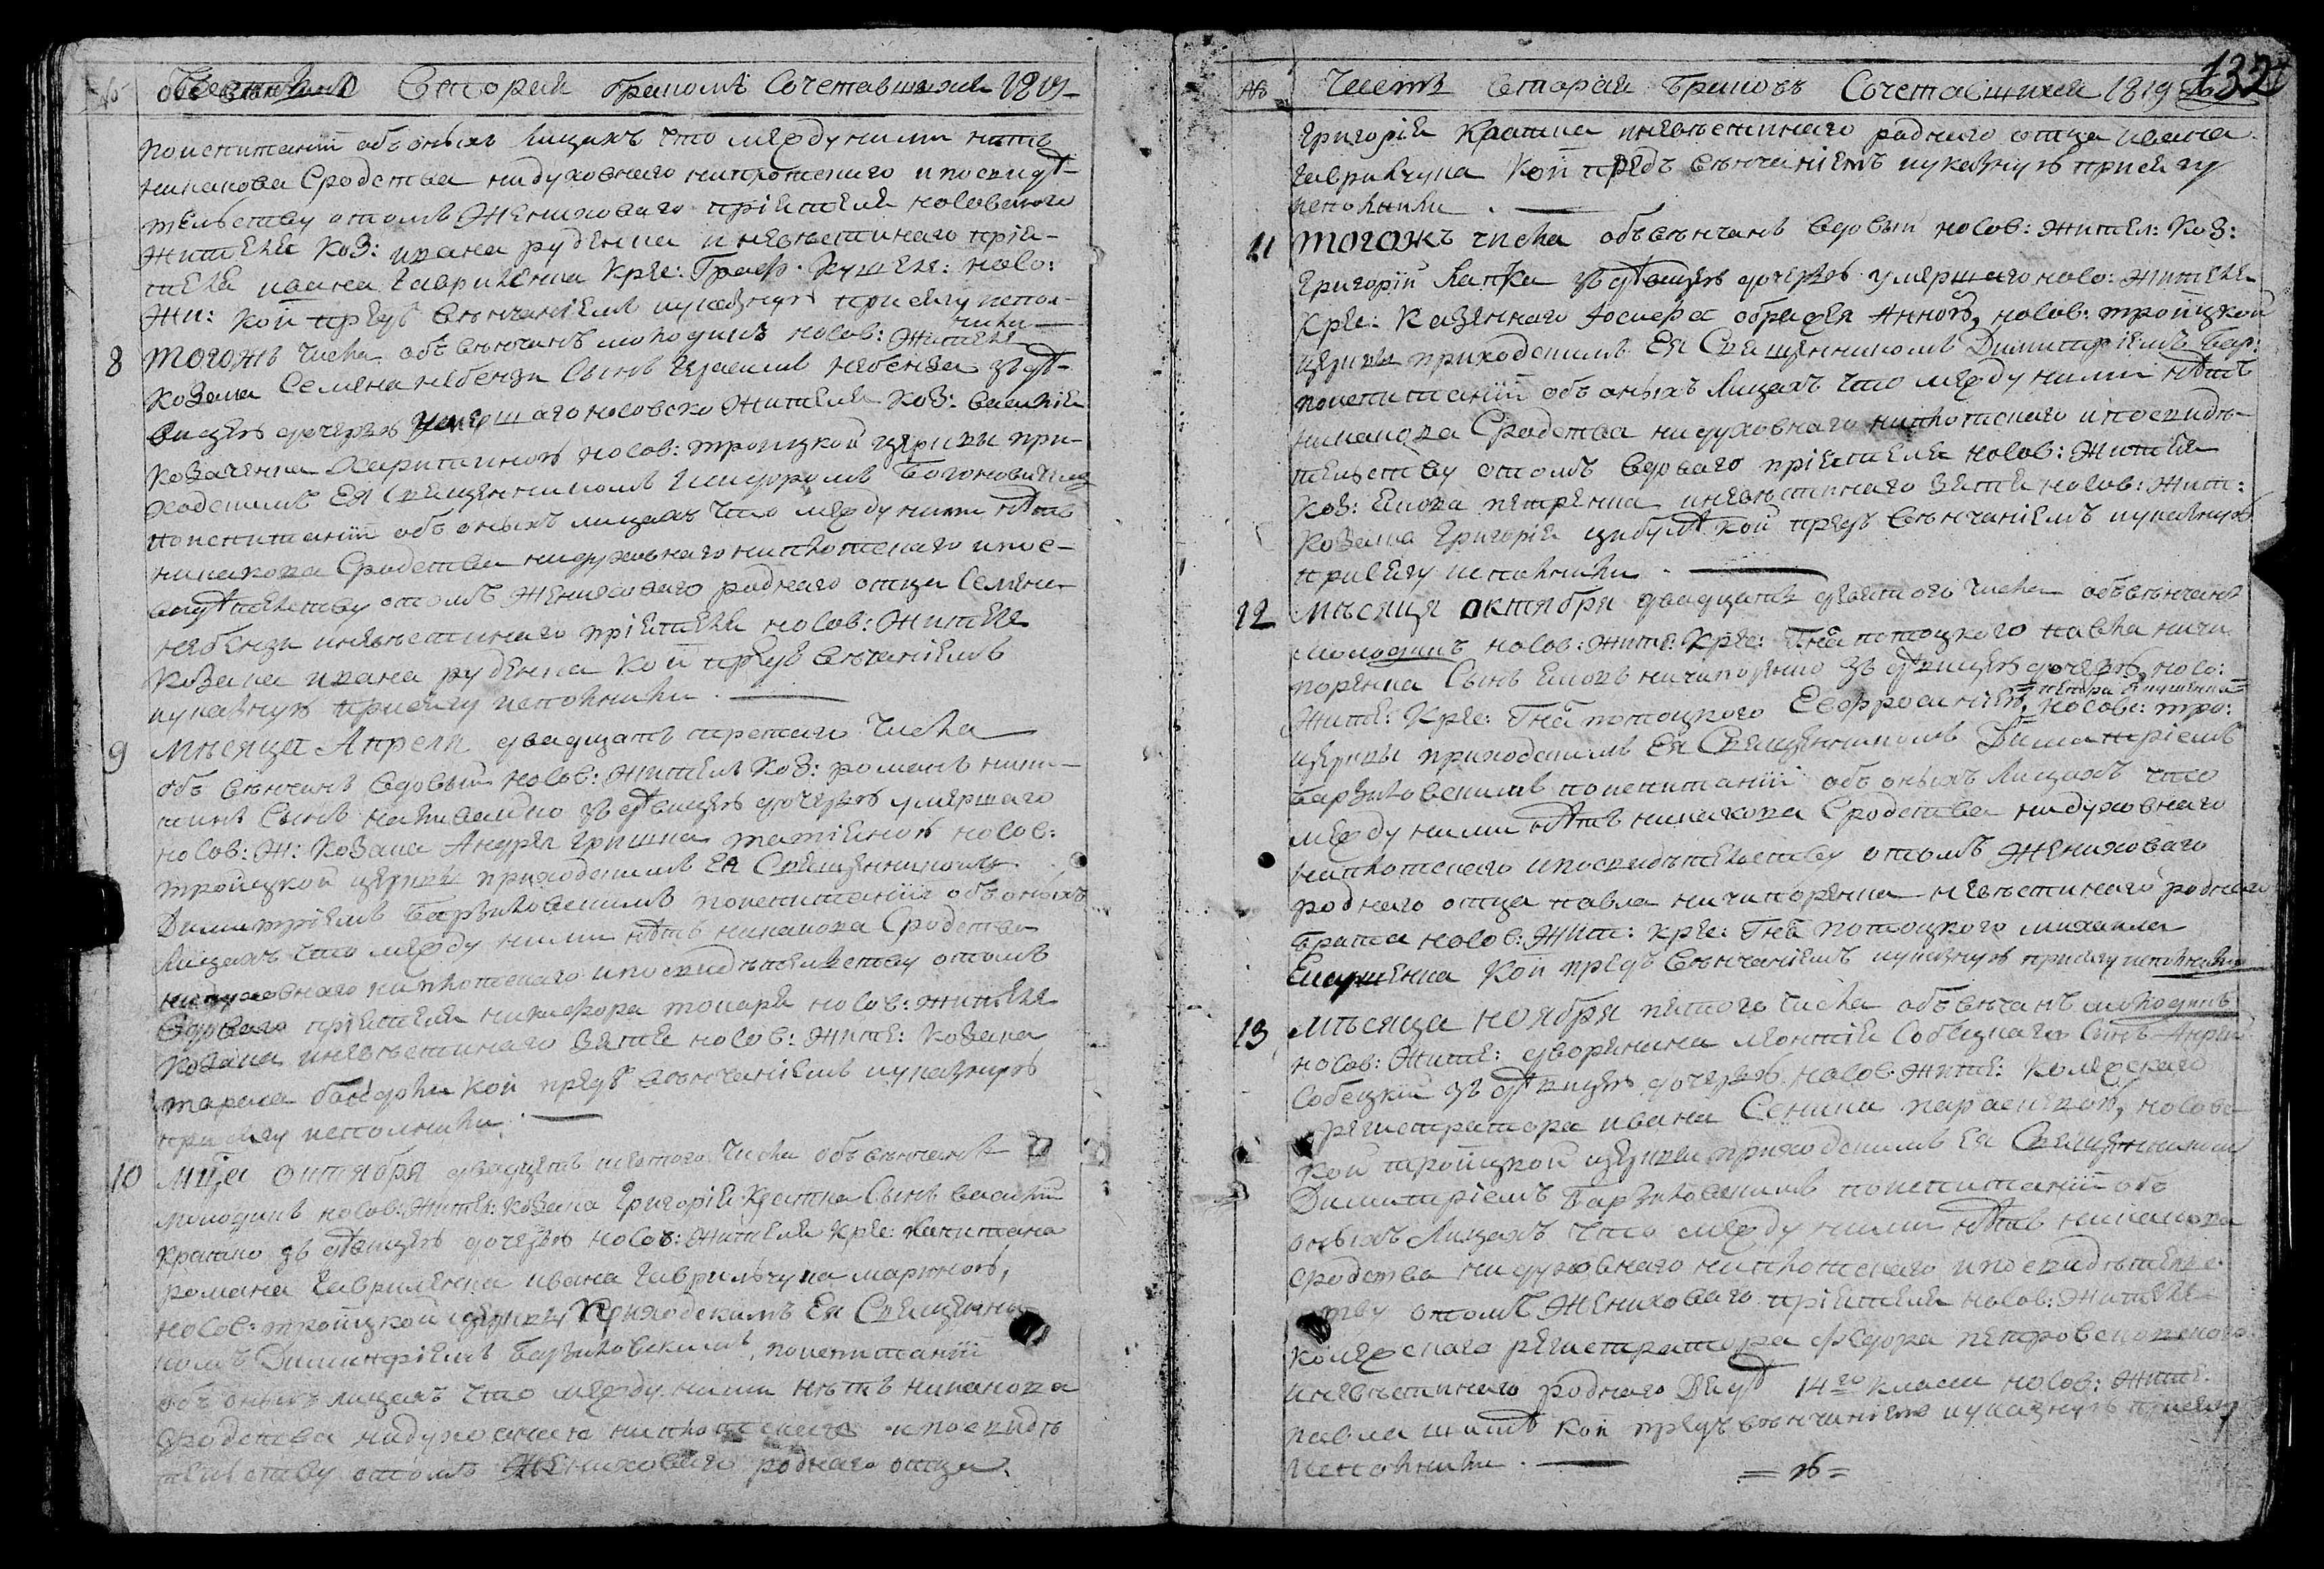 Вторая бракомъ Сочетавшихся 1819
поиспитанїи объ оныхъ лицахъ что между ними нѣтъ
никакова Сродства нидуховнаго ниплотскаго ипосвидѣ-
тельству отомъ женихового прїятеля носовского
жителя коз: ивана руденка иневѣстинаго прїя-
теля ивана гавриленка кре: Граф. носо:
жи: кой предъ венчанїемъ присягу испол-
нили
8 тогожъ числа объвѣнчанъ молодикъ носов: жителя
козака Семена небензи Сынъ герасимъ небенза зъдѣ-
вицею дочерью умершаго носовско жителя коз: василїя
козаченка харитиною носов: троицкой церкви при-
ходскимъ Ея Священникомъ
поиспитанїи объ оныхъ лицахъ что между ними нѣтъ
никакова Сродства нидуховнаго ниплотскаго ипос-
видѣтельству отомъ женихового роднаго отца Семена
небензи иневѣстинаго прїятеля носов: жителя
козака ивана руденка кой предъ венчанїемъ
присягу исполнили.
9 мѣсяца Апреля двадцать третаго числа
объ вѣнчанъ вдовый носов: житель коз: романъ ники-
тинъ Сынъ наливайко зъ дѣвицею дочерью умершаго
носов: ж: козака Андрея гришка татїяною носов:
троицкой церкви приходскимъ Ея Священникомъ
Димитрїемъ Барзиловскимъ поиспитанїи объ оныхъ
лицахъ что между ними нѣтъ никакова Сродства
нидуховнаго ниплотскаго ипосвидѣтельству отомъ
вдоваго прїятеля никифора токаря носов: жителя
козака иневѣстинаго зятя носов: жите: козака
тараса бандоли кой предъ вѣнчанїемъ
присягу исполнили.
10 мца октября двадцять шестого числа объвѣнчанъ
молодикъ носов: жител: козака григорїя кратка Сынъ василїй
кратко зъ дѣвицею дочерью носов: жителя кре: капитана
романа гавриленка ивана гаврильчука мариною,
носов: троицкой церкви приходскимъ Ея Священни-
комъ Димитрїемъ Барзиловскимъ, поиспитанїи
объ оныхъ лицахъ что между ними нѣтъ никакова
сродства нидуховнаго ниплотскаго ипосвидѣ
тельству отомъ женихового роднаго отца
№ Часть вторая Браковъ Сочетавшихся 1819 132
григорїя кратка иневѣстинаго роднаго отца ивана
гаврильчука кой предъ вѣнчанїемъ присягу
исполнили.
11 тогожъ числа объвѣнчанъ вдовый носов: жител: коз:
григорїй лапка зъ дѣвицею дочерью умершаго носо: жителя
кре: казеннаго Iосифа Анною, носов: троицкой
церкви приходскимъ Ея Священникомъ Димитрїемъ Бар:
поиспитанїи объ оныхъ лицахъ что между ними нѣтъ
никакова Сродства нидуховнаго ниплотскаго ипосвидѣ-
тельству отомъ вдоваго прїятеля носов: жителя
коз: якова петренка иневѣстинаго зятя носов: жит:
козака григорїя цибулѣ кой предъ вѣнчанїемъ
присягу исполнили.
12 мѣсяця октября двадцать девятого числа объвѣнчанъ
молодикъ носов: жите: кре: Гна потоцкого павла ничи
поренка Сынъ яковъ ничипоренко зъ дѣвицею дочерью, носо:
жите: кре: Гна потоцкого Евфросинїею, носовс: тро:
церкви приходскимъ Ея Священникомъ Димитрїемъ
Барзиловскимъ поиспитанїи объ оныхъ лицахъ что
между ними нѣтъ никакова Сродства нидуховнаго
ниплотскаго ипосвидѣтельству отомъ женихового
роднаго отца павла ничипоренка невѣстинаго роднаго
брата носов: жит: кре: Гна потоцкого михаила
кой предъ вѣнчанїемъ присягу исполнили
13 мѣсяца ноября пятого числа объвѣчанъ молодикъ
носов: жите: дворянина леонтїя Собецкаго Сынъ Андрей
Собецкїй зъ дѣвицею дочерью носов: жите: колежскаго
регистратора ивана Сеника параскевою, носовс
кой тройцкой церкви приходскимъ Ея Священникомъ
Димитрїемъ Барзиловскимъ поиспитанїи объ
оныхъ лицахъ что между ними нѣтъ никакова
сродства нидуховнаго ниплотскаго ипосвидѣтельс
тву отомъ женихового прїятеля носов: жителя
колежскаго регистратора федора петровскопского
иневѣстинаго роднаго дяди 14го класса носов: жите.
павла кой предъ вѣнчанїемъ присягу
исполнили.